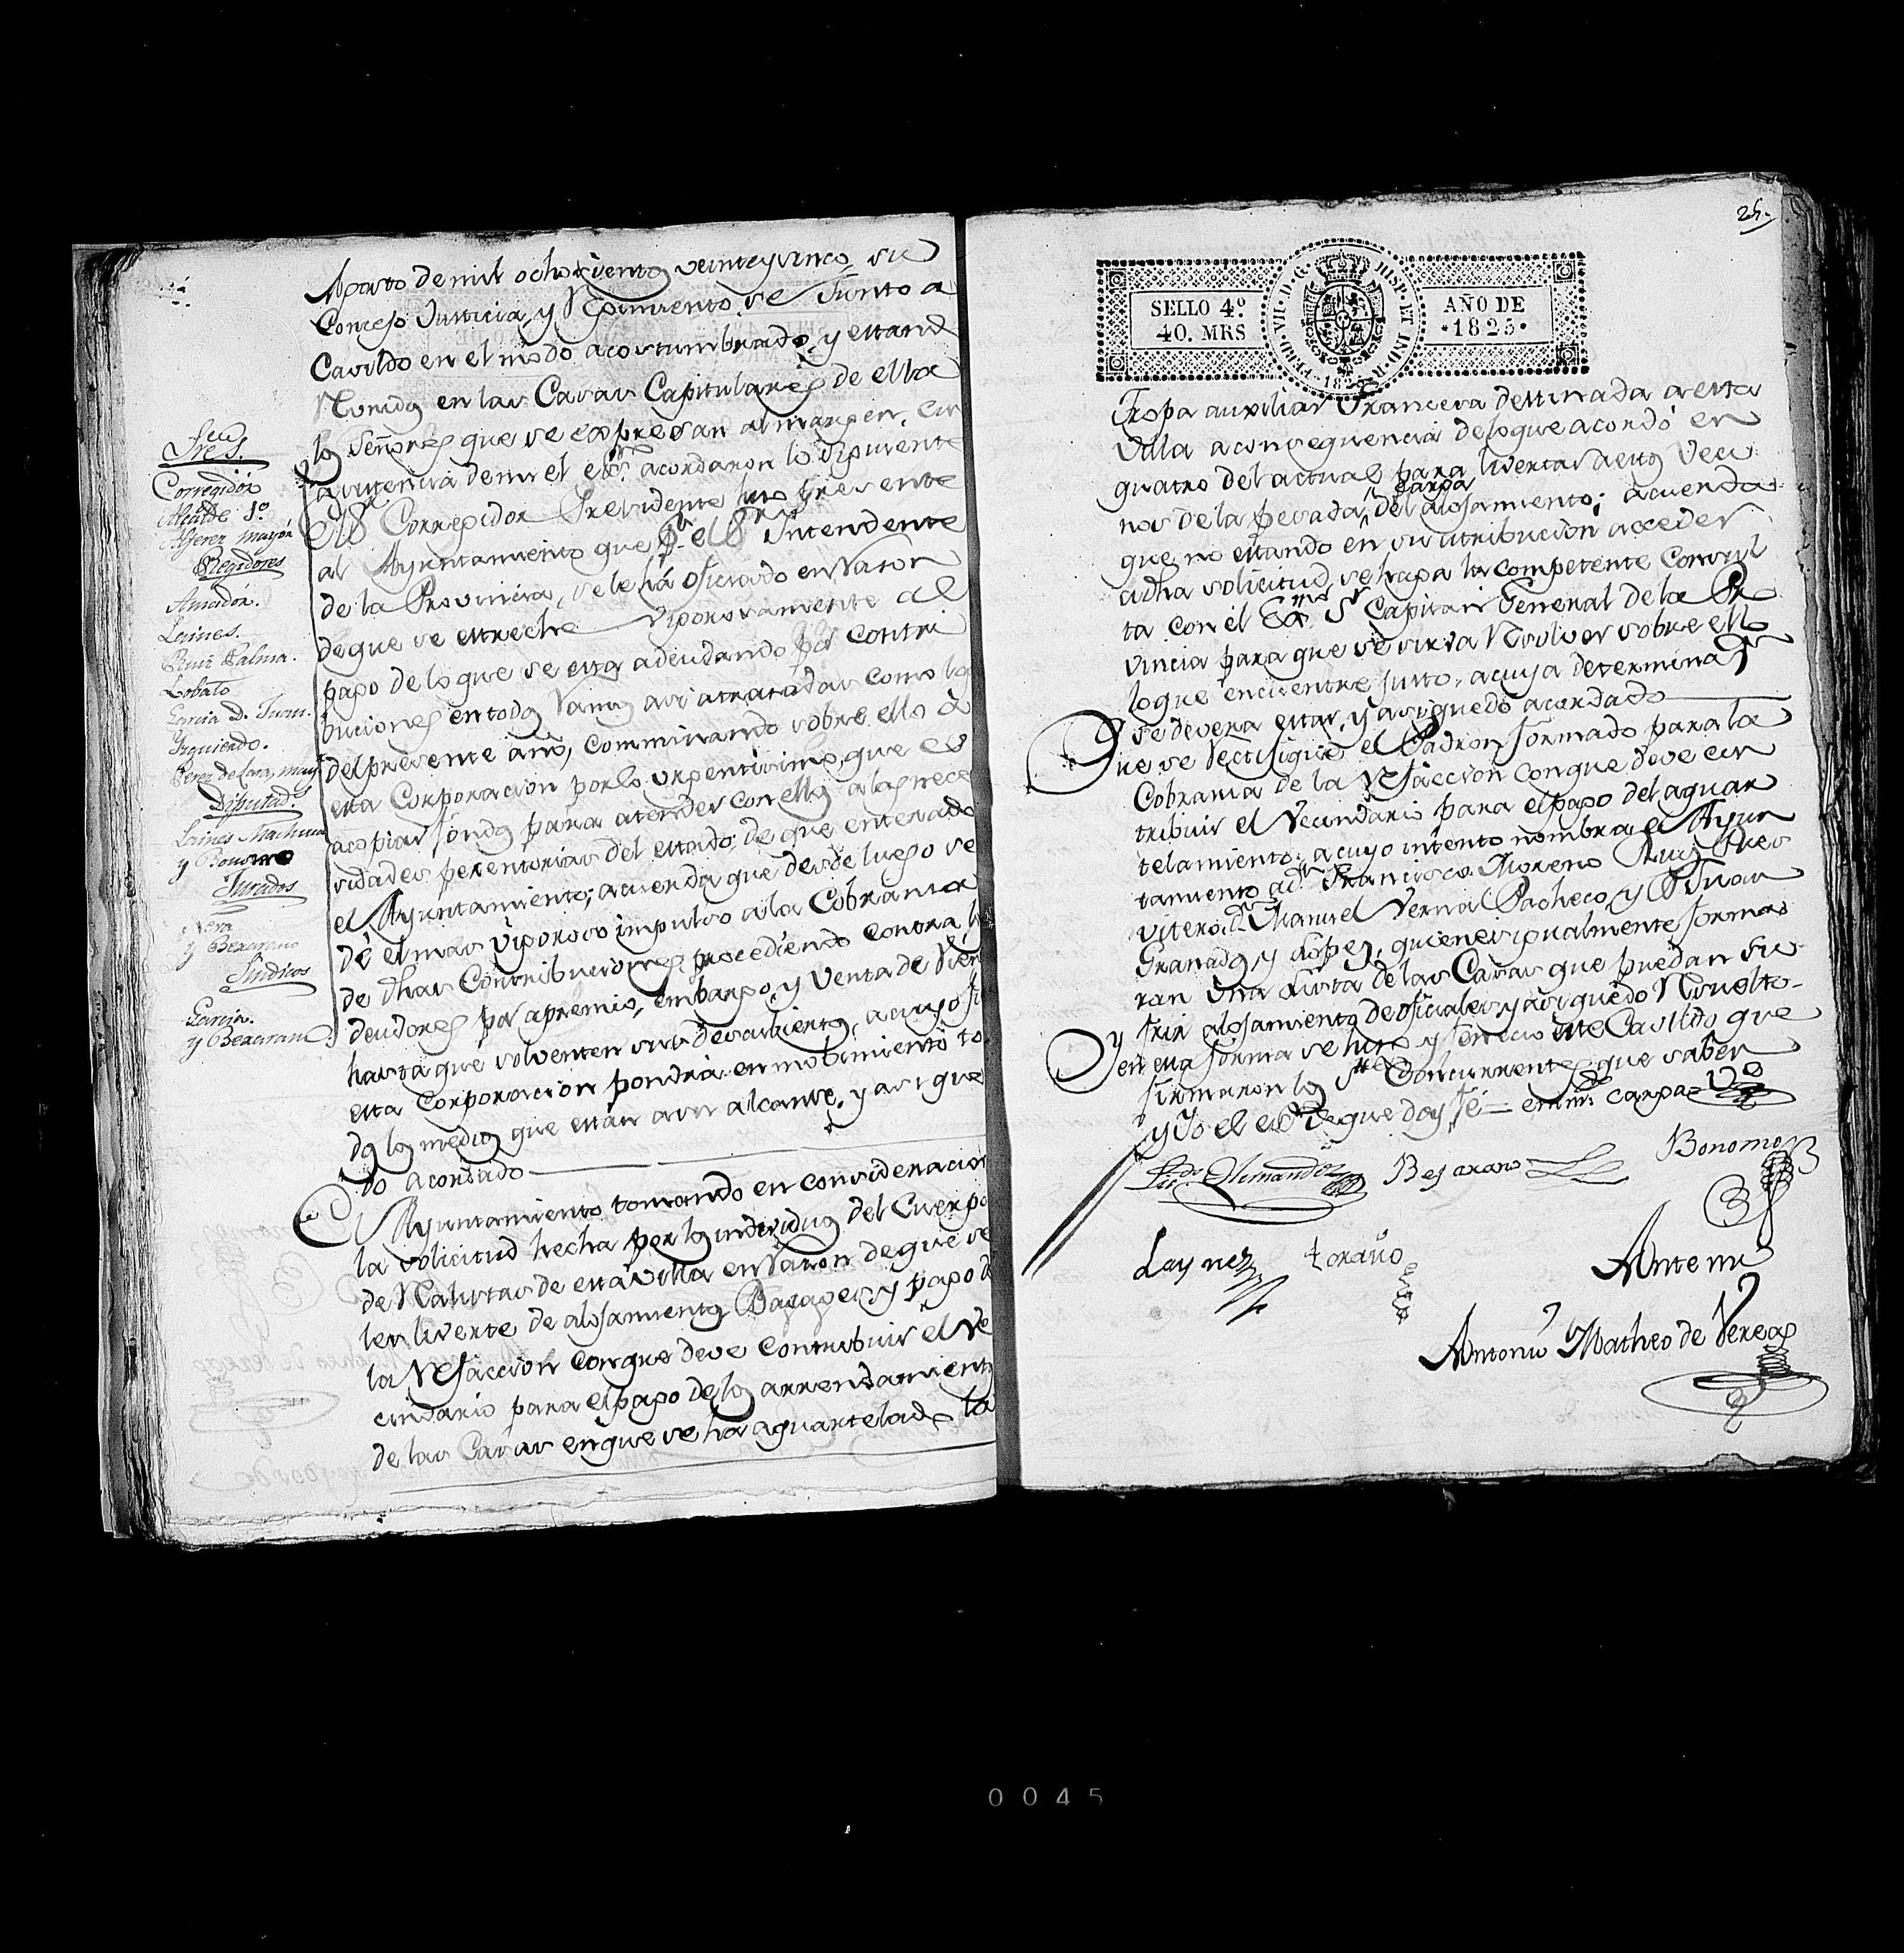 Agosto de mil ochocientos veinte y cinco, su
Concejo Justicia, y Regimiento se Junto a
Cavildo en el modo acostumbrado, y estand
Reunidos en las Casas Capitulares de ella
los Señores que se expresan al margen, con
asistencia de mi el essno acordaron lo siguiente
Sres.
Corregidor
Alcalde 1º
Alferez mayor
Regidores
Amador.
Laines.
Ruiz Palma.
Lobato
Garcia D. Juan.
Izquierdo.
Perez de Lara, may
Diputads.
Laines Machuca
y Bonomo
Jurados
Vera
y Bexarano
Sindicos
Garcia.
y Bexarano
El Sr Corregidor Presidente hizo presente
al Ayuntamiento que pr el Sr Intendente
de la Provincia, se le há oficiado en razon
de que se estreche vigorosamente al
pago de lo que se esta adeudando por contri
buciones en todos ramos asi atrasadas como los
del presente año, comminando sobre ello à
esta Corporacion por lo urgentisimo, que es
acopiar fondos para atender con ellos a las nece
sidades perentorias del estado: de que enterado
el Ayuntamiento; acuerda que desde luego se
dé el mas vigoroso impulso a la Cobranza
de dhas Contribuciones, procediendo contra los
deudores por apremio, embargo, y Venta de Vien
hasta que solventen sus descubiertos, a cuyo fin
esta Corporacion pondrá en mobimiento to
dos los medios que estan a su alcanse, y asi que
do acordado
El Ayuntamiento tomando en consideracion
la solicitud hecha por los individuos del Cuerpo
de Realistas de esta villa en razon de que se
les liverte de alojamientos Bagages, y pago de
la Refaccion con que deve contribuir el Ve
cindario para el pago de los arrendamientos
de las Casas en que se ha aquartelado la
25.
SELLO 4º
40. MRS
FERD · VII · D · G · HISP · ET IND · R · 1825
AÑO DE
·1825·
Tropa auxiliar Francesa destinada a esta
Villa a consequencia de lo que acordó en
quatro del actual para livertar a estos Veci
nos de la pesada carga del alojamiento; acuerda
que no estando en su atribucion acceder
a dha solicitud, se haga la competente Consul
ta con el Exmo Sr Capitan General de la Pro
vincia para que se sirva resolver sobre ello
lo que encuentre justo, a cuya determinaon
se devera estar, y asi quedó acordado
Que se rectifique el Padron formado para la
Cobranza de la Refaccion con que deve con
tribuir el Vecindario para el pago del aquar
telamiento, a cuyo intento nombra el Ayun
tamiento a Dn Francisco Moreno Ruiz Pres
vitero, Dn Manuel Vernal Pacheco, y D Juan
Granados y Lopez, quienes igualmente forma
ran una Lista de las Casas que puedan su
frir alojamiento de oficiales, y asi quedó resuelto
Y en esta forma se hizo y feneció este Cavildo que
firmaron los Sres Concurrentes que saben
y Yo el essno de que doy fé = enmdo carga = Vº
Licdo. Hernandez
Bejarano
Bonomo
Laynez
Loraño
Ante mi
Antonio Matheo de Vereas
0045